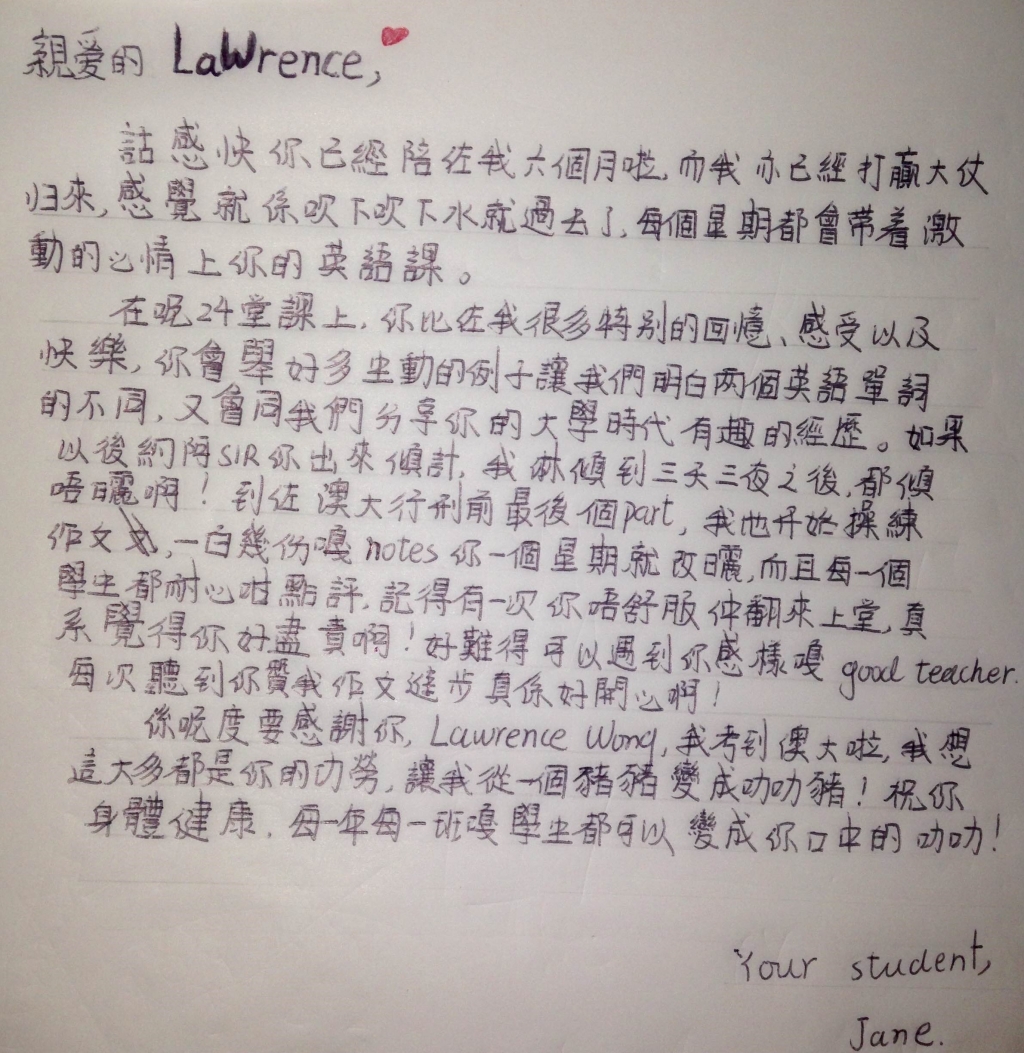 親爱的 LaWrence,
話感快你已經陪佐我六個月啦,而我亦已經打贏大仗
归來,感覺就係吹下吹下水就過去了,每個星期都會带着激
動的心情上你的英語課。
在呢24堂課上,你比佐我很多特别的回憶、感受以及
快樂,你會舉好多生動的例子讓我們明白两個英語單詞
的不同,又會同我們分享你的大學時代有趣的經歷。如果
以後約阿SIR你出來傾計,我諗傾到三天三夜之後,都傾
唔曬啊!到佐澳大行刑前最後個part,我也开始操練
作文,一百幾份嘎notes你一個星期就改曬,而且每一個
學生都耐心咁點評,記得有一次你唔舒服仲翻來上堂,真
系覺得你好盡責啊!好難得可以遇到你感樣嘎 good teacher.
每次聽到你贊我作文進步真係好開心啊!
係呢度要感謝你,Lawrence Wong,我考到澳大啦,我想
這大多都是你的功勞,讓我從一個豬豬變成叻叻豬!祝你
身體健康,每一年每一班嘎學生都可以變成你口中的叻叻!
Your student,
Jane.